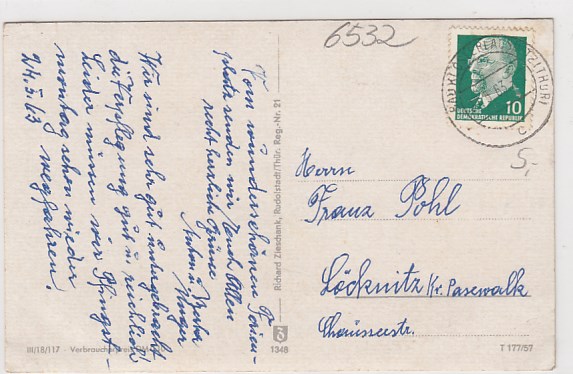 6532
Vom wunderschönen Ferien-
platz senden wir Euch Allen
recht herzliche Grüße
Anton u.
Wir sind sehr gut untergebracht
die Verpflegung gut u. reichlich!
Leider müssen wir Pfingst-
montag schon wieder
24.5.63 wegfahren!
Richard Zieschank, Rudolstadt/Thür. Reg.-Nr. 21
DEUTSCHE
DEMOKRATISCHE REPUBLIK
10
(THÜR)
c
5,-
Herrn
Franz Pohl
Löcknitz Kr. Pasewalk
Chausseestr.
III/18/117 Verbraucherpreis
1348
T 177/57